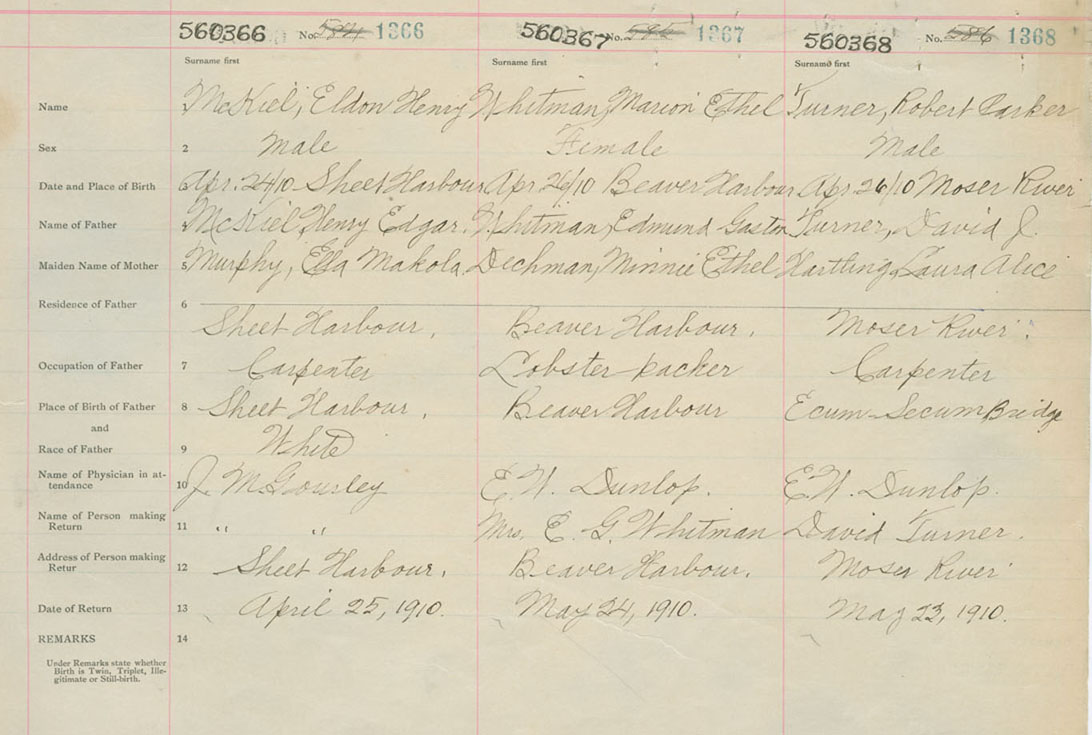 560366 No. 584 1366 560367 No. 585 1367 560368 No. 586 1368
Surname first Surname first Surname first
Name McKiel, Eldon Henry Whitman, Marion Ethel Turner, Robert Parker
Sex 2 Male Female Male
Date and Place of Birth Apr. 24/10 Sheet Harbour Apr 26/10 Beaver Harbour Apr 26/10 Moser River
Name of Father McKiel, Henry Edgar. Whitman, Edmund Gaston Turner, David J.
Maiden Name of Mother 5 Murphy, Ella Makola Dechman, Minnie Ethel Hartling, Laura Alice
Residence of Father 6
Sheet Harbour. Beaver Harbour. Moser River.
Occupation of Father 7 Carpenter Lobster packer Carpenter
Place of Birth of Father 8 Sheet Harbour. Beaver Harbour Ecum Secum Bridge
and
Race of Father 9 White
Name of Physician in at-
tendance 10 J. McGourley E. W. Dunlop. E. W. Dunlop.
Name of Person making
Return 11 " " Mrs. E. G. Whitman David Turner.
Address of Person making
Retur 12 Sheet Harbour. Beaver Harbour. Moser River
Date of Return 13 April 25, 1910. May 24, 1910. May 23, 1910.
REMARKS 14
Under Remarks state whether
Birth is Twin, Triplet, Ille-
gitimate or Still-birth.